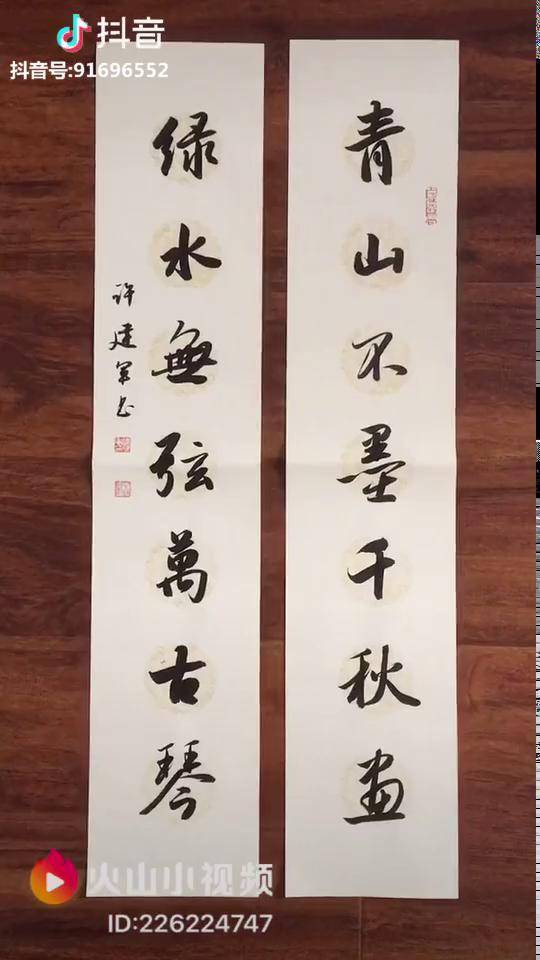 抖音
抖音号:91696552
青山不墨千秋画
绿水無弦萬古琴
许建军书
火山小视频
ID:226224747